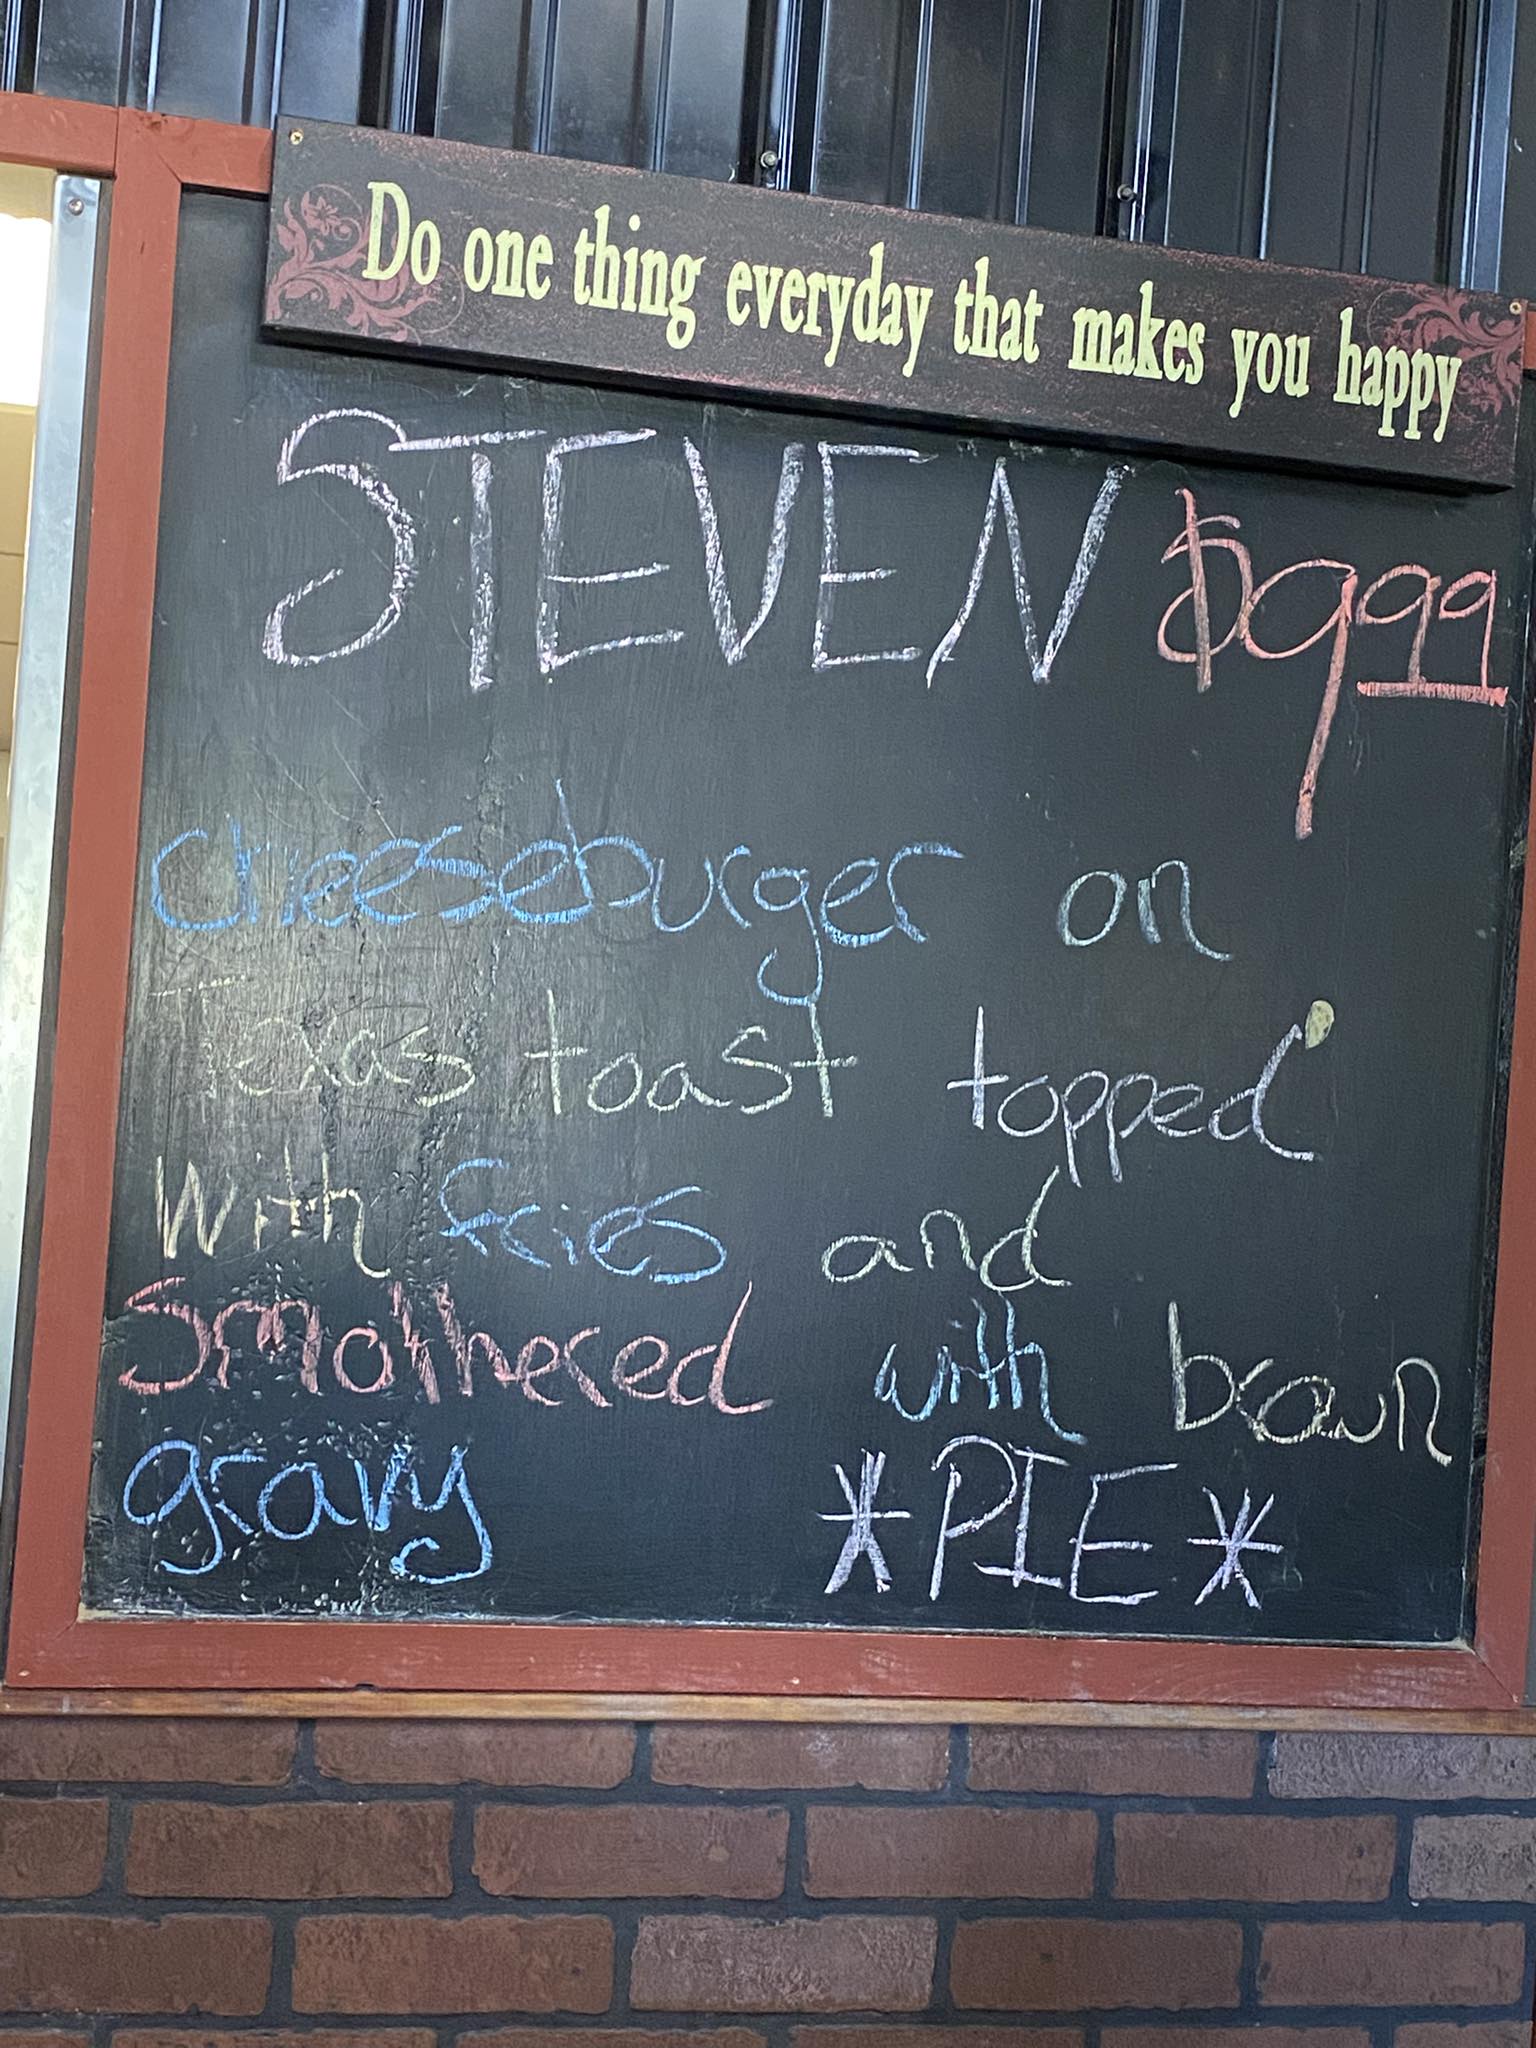 Do one thing everyday that makes you happy
STEVEN $9.99
cheeseburger on
Texas toast topped
with fries and
Smothered with brown
gravy *PIE*